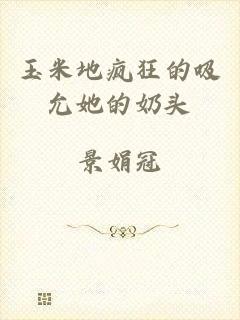 玉米地疯狂的吸
允她的奶头
景娟冠